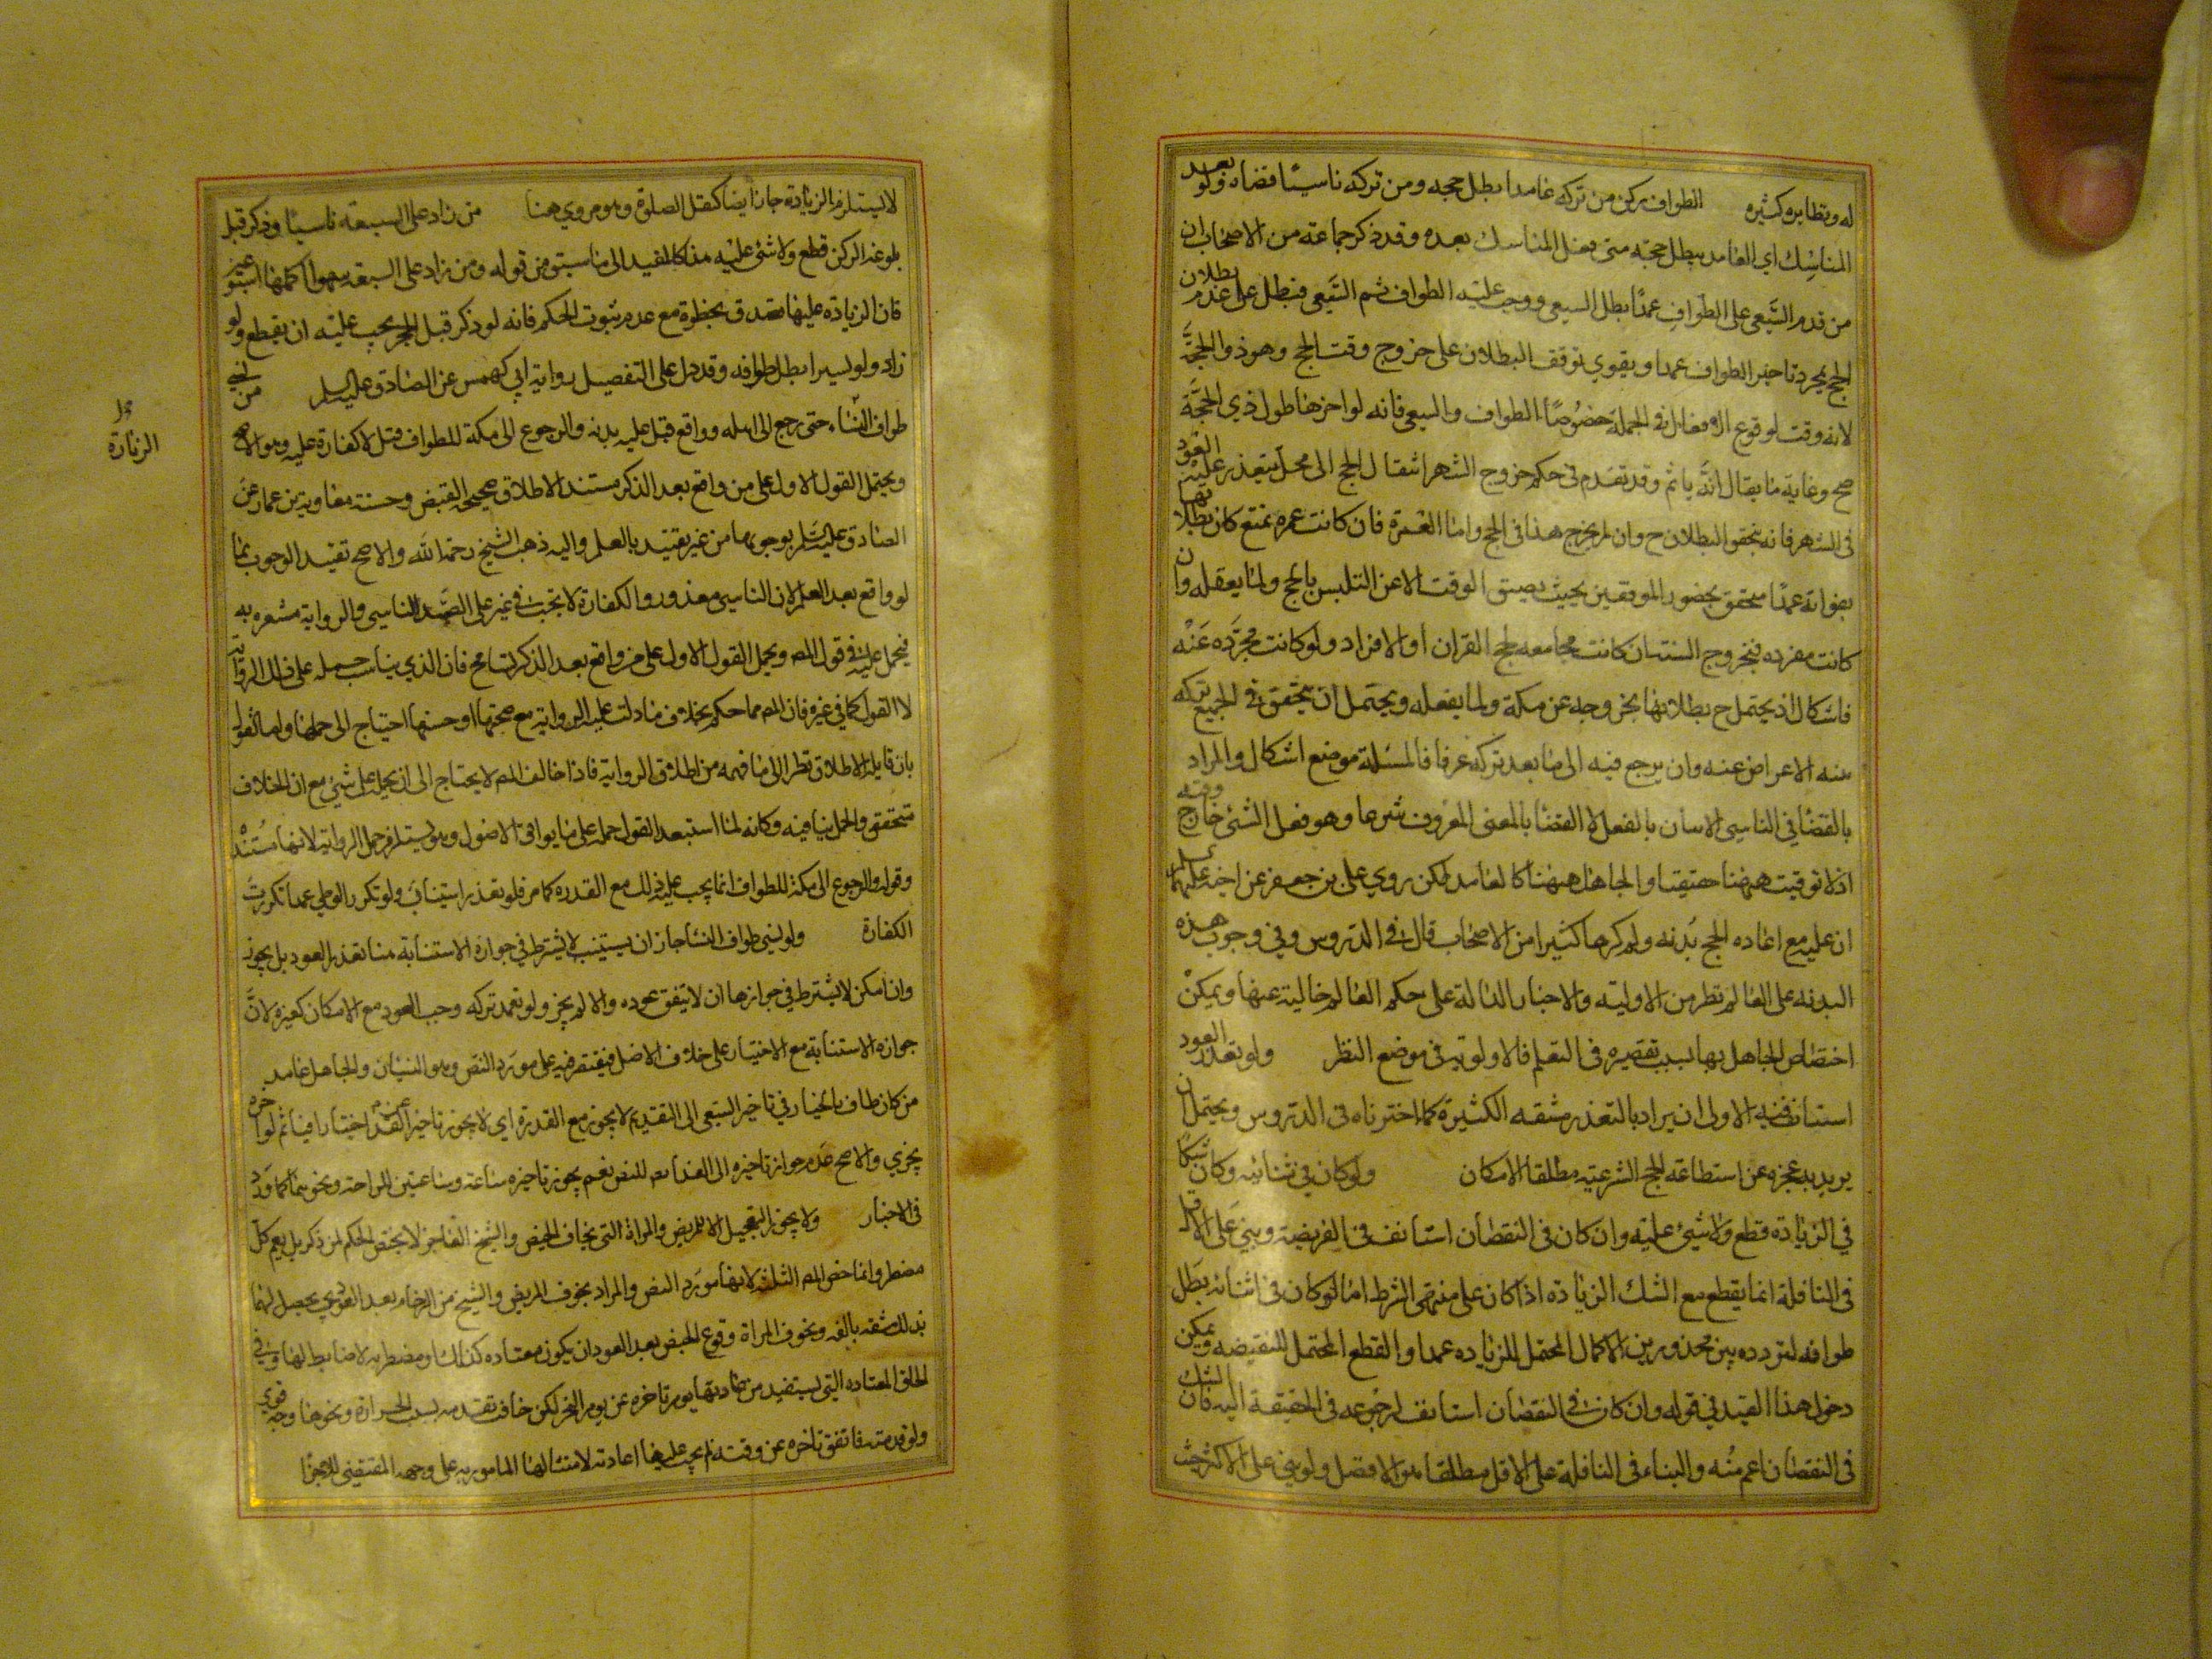 له ونظايره كثيره الطواف ركن من تركه عامدا بطل حجه ومن تركه ناسيا قضاه ولو بعد
المناسك اي العامد يبطل حجه متى فعل المناسك بعده وقد ذكر جماعة من الاصحاب ان
من قدم السعي على الطواف عمدا بطل السعي ووجب عليه الطواف ثم السعي فبطل على عدم بطلان
الحج بمجرد تاخير الطواف عمدا ويقوي توقف البطلان على خروج وقت الحج وهو ذو الحجة
لانه وقت لوقوع الافعال في الجملة خصوصا الطواف والسعي فانه لو اخرهما طول ذي الحجة
صح وغاية ما يقال انه ياثم وقد تقدم في حكم خروج الشهر انتقال الحج الى محل يتعذر عليه العود
في الشهر فانه يتحقق البطلان ح وان لم يخرج هذا في الحج واما العمرة فان كانت عمرة تمتع كان بطلانها
بفواته عمدا متحقق بحضور الموقفين بحيث يضيق الوقت الا عن التلبس بالحج ولما يفعله وان
كانت مفرده فبخروج السنة ان كانت مجامعه لحج القران او الافراد ولو كانت مجرده عنه
فاشكال اذ يحتمل ح بطلانها بخروجه عن مكة ولما يفعله ويحتمل ان يتحقق في الجميع تركه
بنية الاعراض عنه وان يرجع فيه الى ما يعد تركه عرفا فالمسئلة موضع اشكال والمراد
بالقضا في الناسي الاتيان بالفعل لا القضا بالمعنى المعروف شرعا وهو فعل الشئ خارج وقته
اذ لا توقيت ههنا حقيقتا والجاهل ههنا كالعامد لكن روي علي بن جعفر عن اخيه عليهما السلم
ان عليه مع اعاده الحج بدنه ولم يذكرها كثيرا من الاصحاب قال في الدروس وفي وجوب هذه
البدنه على العالم نظر من الاولية والاخبار الدالة على حكم العالم خالية عنها ويمكن
اختصاص الجاهل بها بسبب تقصيره في التعلم فالاولوية في موضع النظر ولو تعذر العود
استناب فيه الاولى ان يراد بالتعذر مشقه الكثيرة كما اخترناه في الدروس ويحتمل ان
يريد به عجزه عن استطاعة الحج الشرعيه مطلقا الامكان ولو كان في اثنائه وكان شكا
في الزيادة قطع ولا شئ عليه وان كان في النقصان استانف في الفريضة وبني على الاقل
في النافلة انما يقطع مع الشك الزيادة اذا كان على منتهى الشوط اما لو كان في اثنائه بطل
طوافه لتردده بين محذورين الاكمال المحتمل للزياده عمدا والقطع المحتمل للنقيصه ويمكن
دخول هذا القيد في قوله وان كان في النقصان استانف لرجوعه في الحقيقة اليه فان الشك
في النقصان اعم منه والبناء في النافلة على الاقل مطلقا هو الافضل ولو بني على الاكثر حيث
لا يستلزم الزيادة جاز ايضا كفعل الصلوة وهو مروي هنا من زاد على السبعة ناسيا وذكر قبل
بلوغه الركن قطع ولا شئ عليه هذا كالمقيد الى ما سبق من قوله ومن زاد على السبعة سهوا اكملها اسبوعين
فان الزيادة عليها تصدق بخطوة مع عدم ثبوت الحكم فانه لو ذكر قبل الحجر يجب عليه ان يقطع ولو
زاد ولو يسيرا بطل طوافه وقد دل على التفصيل رواية ابي كهمس عن الصادق عليه السلم من نسي
طواف النساء حتى رجع الى اهله وواقع قيل عليه بدنه والرجوع الى مكة للطواف وقيل لا كفارة عليه وهو الاصح
ويحتمل القول الاول على من واقع بعد الذكر مستند الاطلاق صحيحة العيص وحسنة معاوية بن عمار عن
الصادق عليه السلم بوجوبها من غير تقييد بالعلم واليه ذهب الشيخ رحمه الله والاصح تقييد الوجوب بما
لو واقع بعد العلم لان الناسي معذور والكفارة لا تجب في غير على الصيد الناسي والرواية مشعره به
فيحمل عليه في قول المص ويحمل القول الاول على من واقع بعد الذكر تسامح فان الذي يناسب حمله على ذلك الرواية
لا القول كما في غيره فان المص مما حكم بخلاف ما دلت عليه الرواية مع صحتها او حسنها احتياج الى حملها واما القول
بان قايله الاطلاق نظر الى ما فهمه من اطلاق الرواية فاذا خالف المص لا يحتاج الى ان يحمله على شئ مع ان الخلاف
متحقق والحمل ينافيه وكانه لما استبعد القول حمله على ما يوافق الاصول وهو يستلزم حمل الرواية لانها مستند
وقوله والرجوع الى مكة للطواف انما يجب عليه ذلك مع القدره كما مر فلو تعذر استناب ولو تكرر الوطي عمدا تكررت
الكفارة ولو نسي طواف النسا جاز ان يستنيب لا يشترط في جوازه الاستنابة هنا تعذر العود بل يجوز
وان امكن لا يشترط في جوازها ان لا يتفق عوده والا لم يجز ولو تعمد تركه وجب العود مع الامكان كغيره لان
جوازه الاستنابة مع الاختيار على خلاف الاصل فيقتصر فيه على مورد النص وهو النسيان والجاهل عامد
من كان طاف بالخيار في تاخير السعي الى الغد ثم لا يجوز مع القدرة اي لا يجوز تاخيره عن الغد اختيارا فياثم لو اخره
يجزي والاصح عدم جواز تاخيره الى الغداه للنص نعم يجوز تاخيره ساعة وساعتين للراحة ونحوهما كما ورد
في الاخبار ولا يجوز التعجيل الا للمريض والمراة التي تخاف الحيض والشيخ العاجز لا يختص الحكم لمن ذكر بل يعم كل
مضطر وانما خص المص الثلثة لانها مورد النص والمراد بخوف المريض والشيخ من الزحام بعد العود الذي يحصل لهما
بذلك مشقه بالغه وبخوف المراة وقوع الحيض بعد العود ان يكون معتاده كذلك او مضطربه لا ضابط لها وفي
الحاق المعتاده التي يستفيد من عادتها يوم تاخره عن يوم النحر لكن خافت تقدمه بسبب الحرارة ونحوها وجه قوي
ولو قدمته فاتفق تاخره عن وقته لم يجب عليها اعادته لامتثالها المامور به على وجهه المقتضي للاجزا
الزيارة